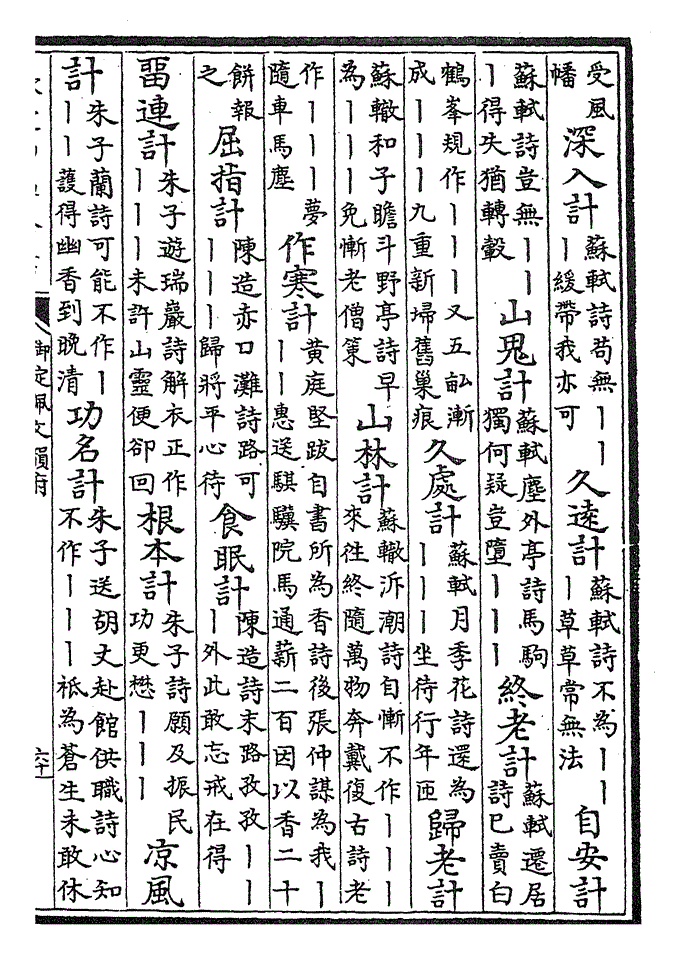 受風幡 深入計 蘇軾詩苟無丨丨丨緩帶我亦可 久遠計 蘇軾詩不為丨丨丨草草常無法 自安計
蘇軾詩豈無丨丨丨得失猶轉轂 山鬼計 蘇軾塵外亭詩馬駒獨何疑豈墮丨丨丨 終老計 蘇軾遷居詩已賣白
鶴峯規作丨丨丨又五畝漸成丨丨丨九重新埽舊巢痕 久處計 蘇軾月季花詩還為丨丨丨坐待行年匝 歸老計
蘇轍和子瞻斗野亭詩早為丨丨丨免慚老僧箠 山林計 蘇轍泝潮詩自慚不作丨丨丨來往終隨萬物奔戴復古詩老
作丨丨丨夢隨車馬塵 作寒計 黃庭堅跋自書所為香詩後張仲謀為我丨丨丨惠送騏驥院馬通薪二百因以香二十
餅報之 屈指計 陳造赤口灘詩路可丨丨丨歸將平心待 食眠計 陳造詩末路孜孜丨丨丨外此敢忘戒在得
畱連計 朱子遊瑞巖詩解衣正作丨丨丨未許山靈便卻回 根本計 朱子詩願及振民功更懋丨丨丨 凉風
計 朱子蘭詩可能不作丨丨丨護得幽香到晚清 功名計 朱子送胡丈赴館供職詩心知不作丨丨丨祗為蒼生未敢休
御定佩文韻府
六十